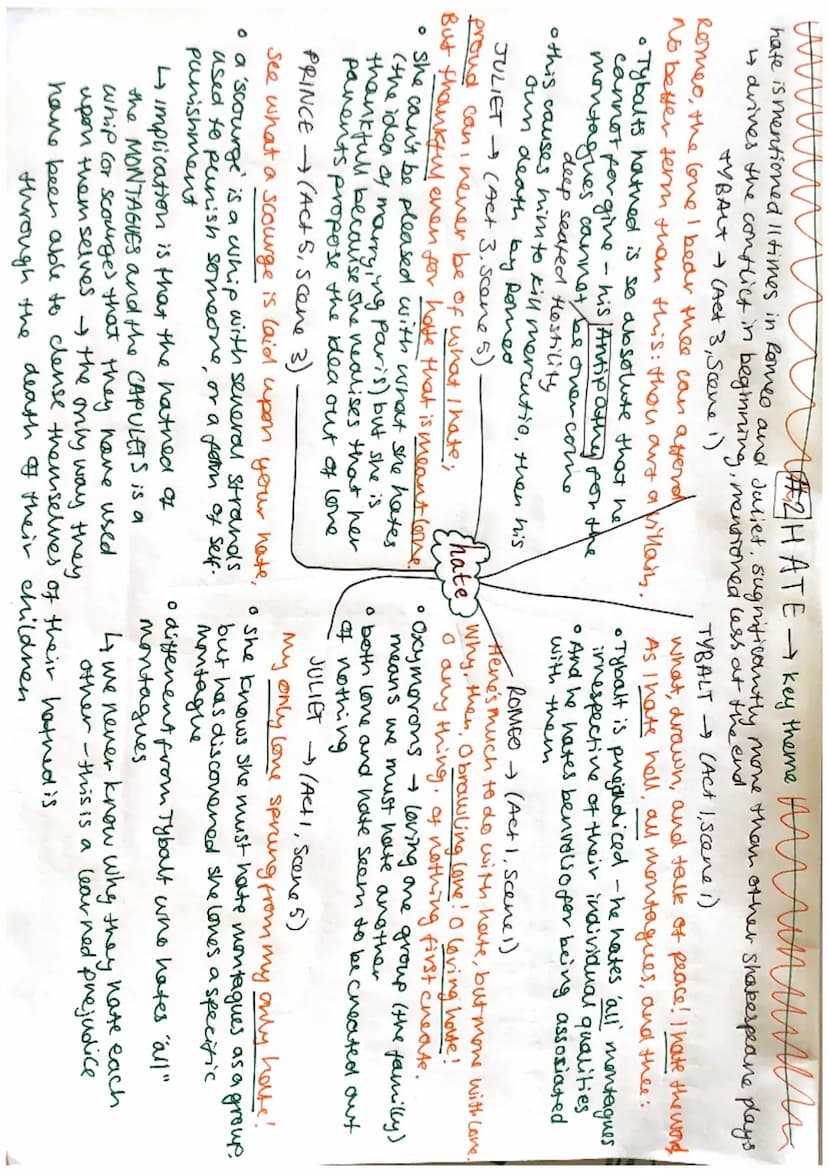 #2 HATE → key theme
hate is mentioned 11 times in Romeo and Juliet, significantly more than other Shakespeare plays
↳ drives the conflict in beginning, mentioned less at the end
TYBALT → (Act 3, Scene 1)
Romeo, the love I bear thee can afford
No better term than this: thou art a villain.
• Tybalts hatred is so absolute that he
cannot forgive - his Antipathy for the
montagues cannot be overcome
deep seated hostility
• this causes him to kill mercutio, then his
own death by Romeo
JULIET → (Act 3, Scene 5)
proud can I never be of what I hate;
But thankful even for hate that is meant love.
• She can't be pleased with what she hates
(the idea of marrying paris) but she is
thankfull because she realises that her
parents propose the idea out of love
PRINCE → (Act 5, Scene 3)
See what a scourge is laid upon your hate,
• a 'scourge' is a whip with several strands
used to punish someone, or a form of self-
punishment
↳ implication is that the hatred of
the MONTAGUES and the CAPULETS is a
whip (or scourge) that they have used
upon themselves → the only way they
have been able to clense themselves of their hatred is
through the death of their children
hate
TYBALT → (Act 1, Scene 1)
What, drawn, and talk of peace! I hate the word,
As I hate hell, all montagues, and thee:
• Tybalt is prejudiced - he hates 'all' montagues
irrespective of their individual qualities
• And he hates benvolio for being assosiated
with them
ROMEO → (Act 1, Scene 1)
Here's much to do with hate, but more with love.
Why, then, O brawling love! O loving hate!
O any thing, of nothing first create.
• Oxymorons → loving one group (the family)
means we must hate another
• both love and hate seem to be created out
of nothing
JULIET → (Act 1, Scene 5)
My only love sprung from my only hate!
• She knows she must hate montagues as a group,
but has discovered she loves a specific
montague
• different from Tybalt who hates "all"
montagues
↳ we never know why they hate each
other - this is a learned prejudice